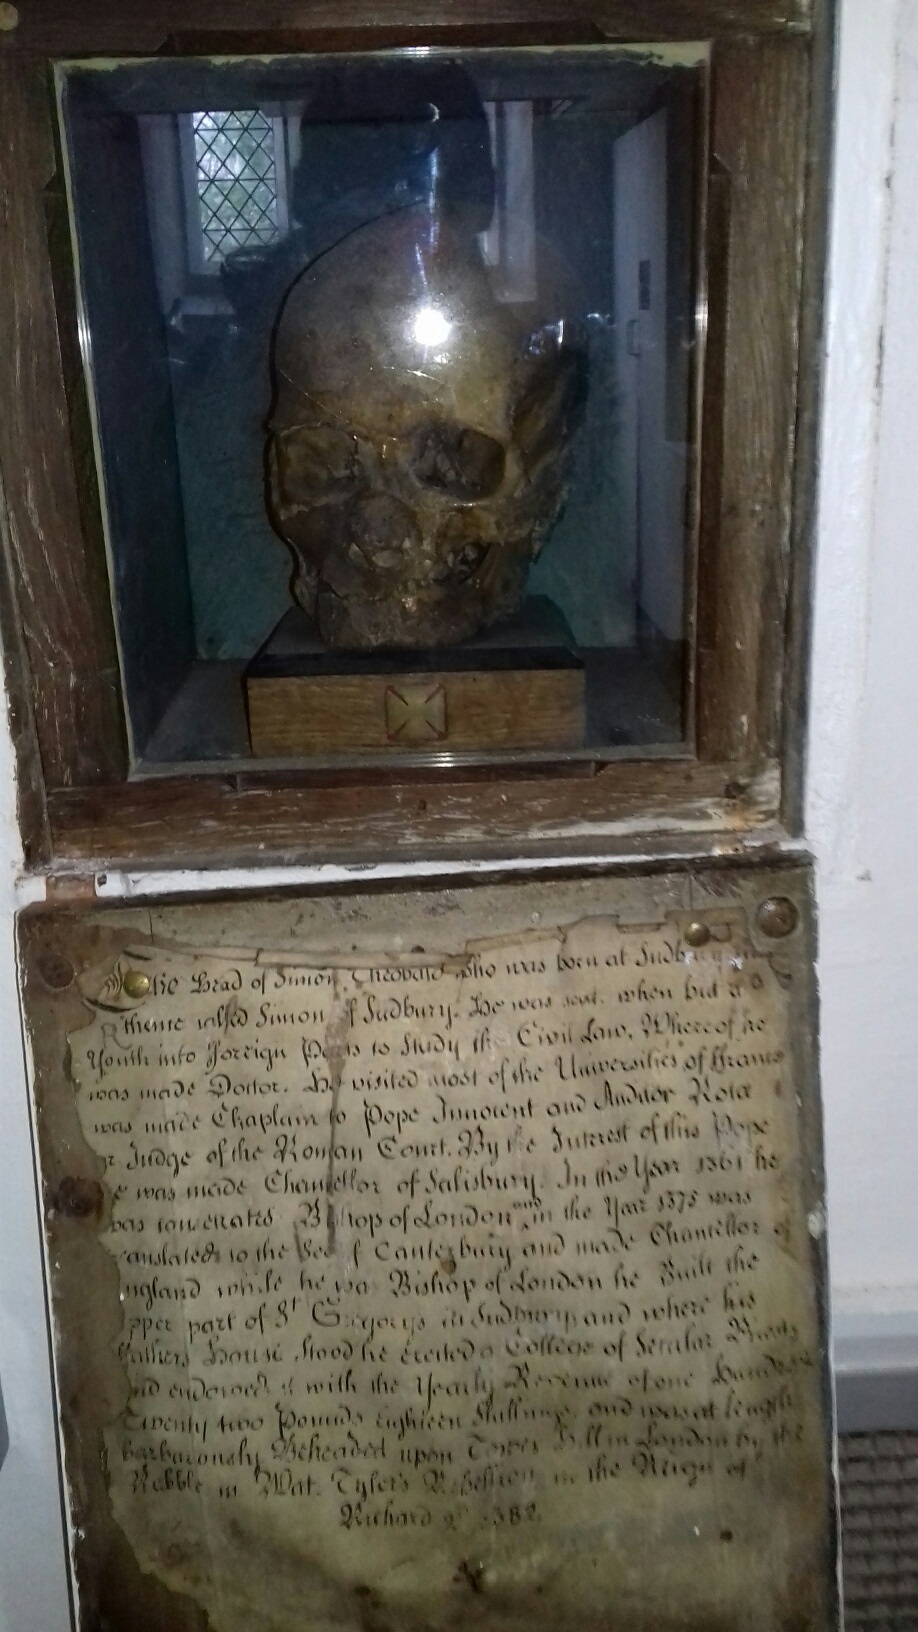 The Head of Simon Theobald who was born at Sudbury
thence called Simon of Sudbury. He was sent when but a
Youth into Forreign Parts to Study the Civil Law, Whereof he
was made Doctor. He visited most of the Universities of France
was made Chaplain to Pope Innocent and Auditor Rotæ
or Judge of the Roman Court. By the Interest of this Pope
he was made Chancellor of Salisbury. In the Year 1361 he
was consecrated Bishop of London and in the Year 1375 was
translated to the See of Canterbury and made Chancellor of
England while he was Bishop of London he Built the
upper part of St Gregorys in Sudbury and where his
Fathers House stood he erected a College of Secular Priests
and endowed it with the Yearly Revenue of one Hundred
Twenty two Pounds Eighteen Shillings, and was at length
barbarously Beheaded upon Tower Hill in London by the
Rabble in Wat. Tyler's Rebellion in the Reign of
Richard 2d 1382.